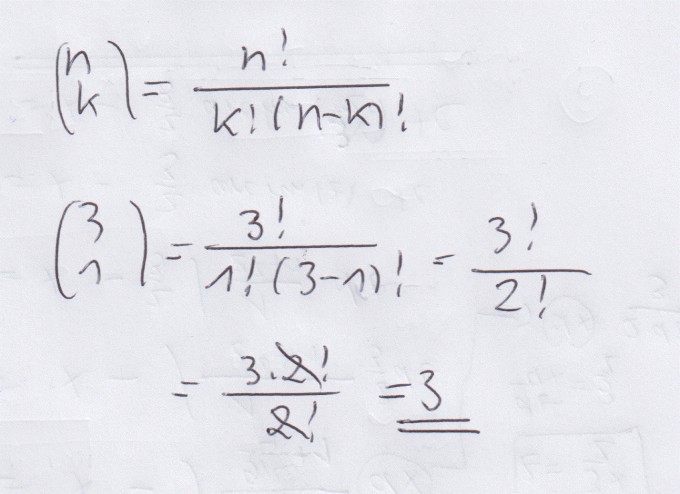 (n k) = n! / k!(n-k)!
(3 1) = 3! / 1!(3-1)! = 3! / 2!
= 3·2! / 2! = 3